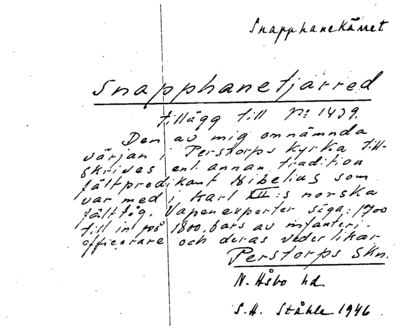 Snapphanekärret
Snapphanetjärred
tillägg till No 1439.
Den av mig omnämnda
värjan i Perstorps kyrka till-
skrives enl. annan tradition
fältprodikant Nibelius som
var med i Karl XII:s norska
fälttåg. Vapenexperter säga: 1700
till in på 1800, bars av infanteri
officerare och deras vederlikar
Perstorps Skn.
N. Håsbo hd
S.H. Ståhle 1946.